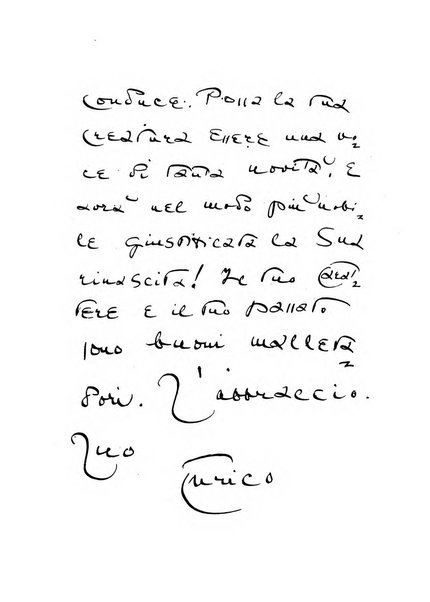 conduce. Possa la tua
creatura essere una vo=
ce di tanta novità, e
avrà nel modo più nobi=
le giustificata la sua
rinascita! Il tuo carat=
tere e il tuo passato
sono buoni malleva=
dori. T'abbraccio.
Tuo
Enrico